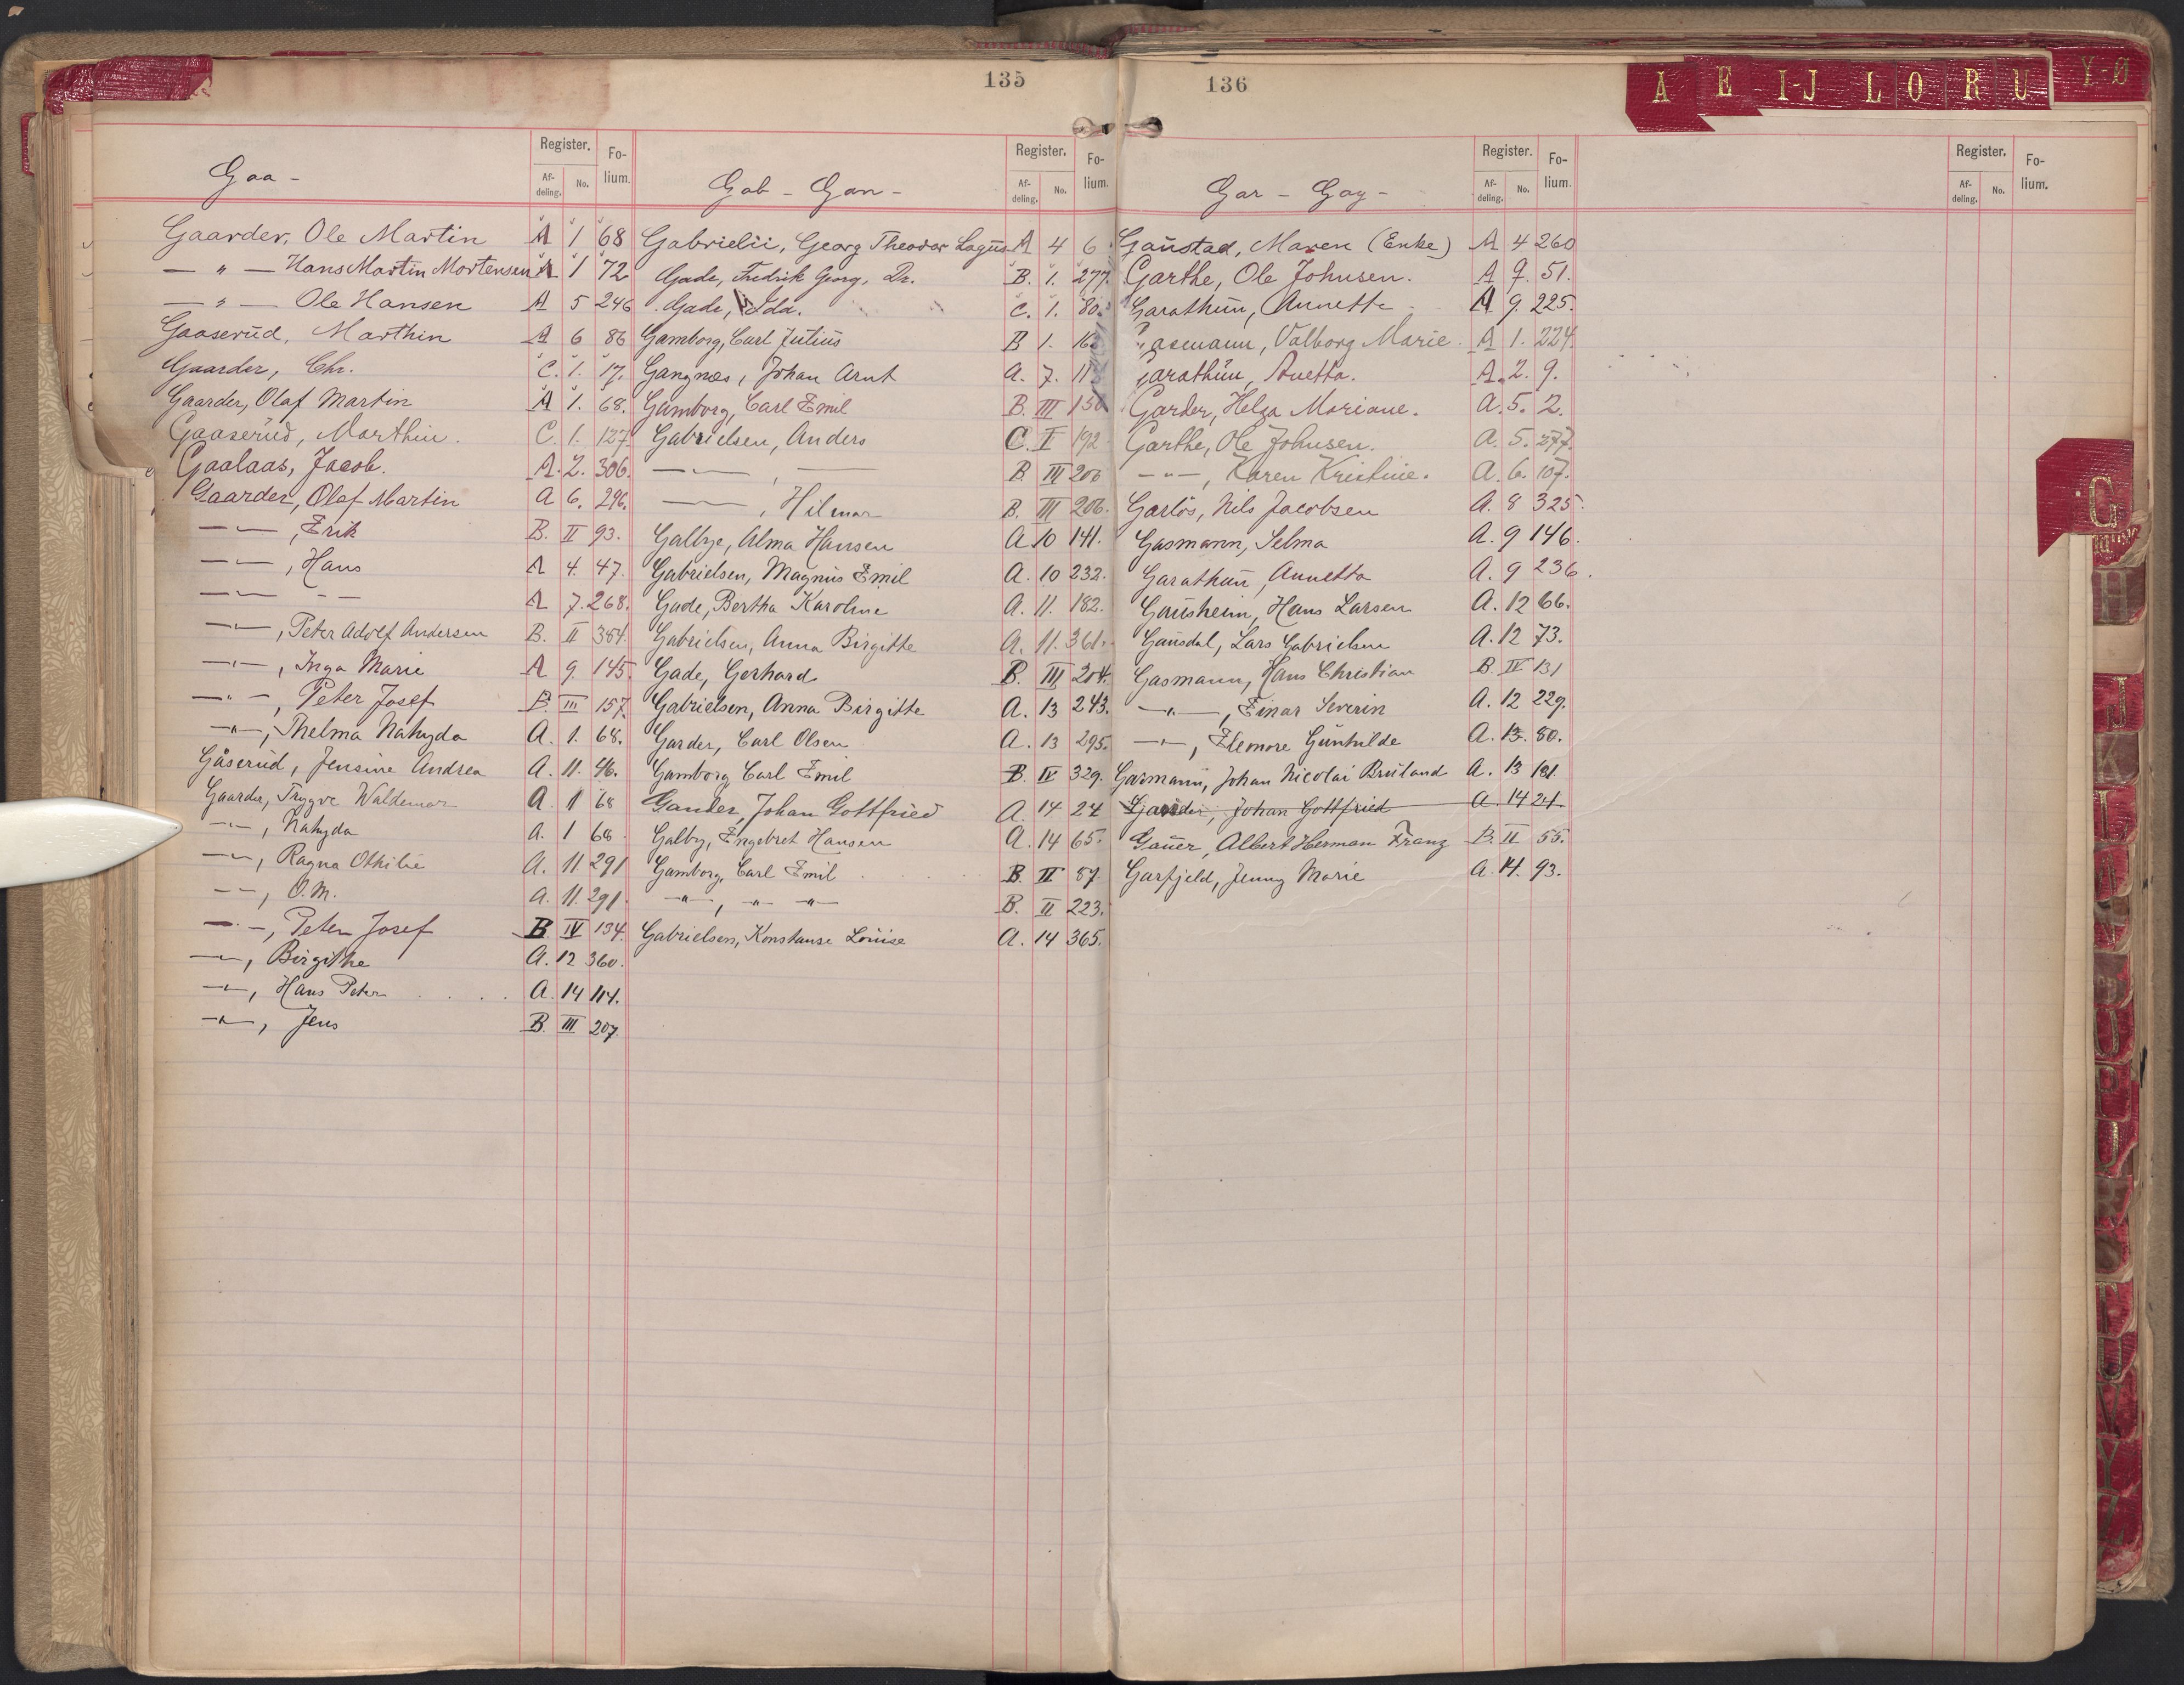 135
Register.
Fo-
lium.
Af-
deling.
No.
Gaa -
Gaarder, Ole Martin A 1 68
— " — Hans Martin Mortensen A 1 72
— " — Ole Hansen A 5 246
Gaaserud, Marthin A 6 86
Gaarder, Chr. C. 1. 17.
Gaarder, Olaf Martin A 1. 68.
Gaaserud, Marthin. C. 1. 127
Gaalaas, Jacob. A. 2. 306.
Gaarder, Olaf Martin A 6. 296.
— " —, Erik B. II 93.
— " —, Hans A 4. 47.
— " — - - A 7. 268.
— " —, Peter Adolf Andersen B. II 384.
— " —, Inga Marie A 9. 145
— " —, Peter Josef B. III 157.
— " —, Thelma Nahyda A. 1. 68.
Gåserud, Jensine Andrea A. 11. 46.
Gaarder, Trygve Waldemar A 1 68
— " —, Nahyda A. 1 68.
— " —, Ragna Othilie A. 11 291
— " —, O.M. A. 11. 291.
— " —, Peter Josef B IV 134.
— " —, Birgithe A. 12 360.
— " —, Hans Peter A. 14 114.
— " —, Jens B. III 207.
Register.
Fo-
lium.
Af-
deling.
No.
Gab - Gan -
Gabrielii, Georg Theodor Lagus A 4 6
Gade, Fredrik Georg, Dr. B. 1. 277.
Gade, Ida. C. 1. 80.
Gamborg, Carl Julius B 1.
Gangnæs, Johan Arnt A. 7.
Gamborg, Carl Emil B. III 150
Gabrielsen, Anders C. I 192
— " —, — B. III 206
— " —, Hilmar B. III 206.
Galbye, Alma Hansen A 10 141.
Gabrielsen, Magnus Emil A. 10 232.
Gade, Bertha Karoline A. 11. 182.
Gabrielsen, Anna Birgitte A. 11. 361.
Gade, Gerhard B. III 204.
Gabrielsen, Anna Birgitte A. 13 243.
Garder, Carl Olsen A. 13 295.
Gamborg Carl Emil B. IV 329.
Gander, Johan Gottfried A. 14 24
Galby, Engebret Hansen A. 14 65.
Gamborg, Carl Emil B. II 87
— " —, — " — — " — B. II 223.
Gabrielsen, Konstanse Louise A. 14 365.
136
A E I-J L O R U Y-Ø
Register.
Fo-
lium.
Af-
deling.
No.
Gar - Gay -
Gaustad, Maren (Enke) A 4 260
Garthe, Ole Johnsen. A 7. 51.
Garathun, Annette A 9. 225.
Gasmann, Valborg Marie. A 1. 224.
Garathun, Anetta. A. 2. 9.
Garder, Helga Mariane. A. 5. 2.
Garthe, Ole Johnsen. A. 5. 277.
— " —, Karen Kristine. A. 6. 107.
Garlös, Nils Jacobsen A. 8 325.
Gasmann, Selma A. 9 146.
Garathun, Annetta A. 9 236.
Gausheim, Hans Larsen A. 12 66.
Gausdal, Lars Gabrielsen A. 12 73.
Gasmann, Hans Christian B. IV 131
— " —, Einar Severin A. 12 229.
— " —, Eleonore Gunhilde A. 13. 80.
Garmann, Johan Nicolai Bruland A. 13 181.
Gander, Johan Gottfried A. 14 24.
Gauer, Albert Herman Franz B. II 55.
Garfjeld, Jenny Marie A. 14. 93.
Register.
Fo-
lium.
Af-
deling.
No.
G
H
J
K
L